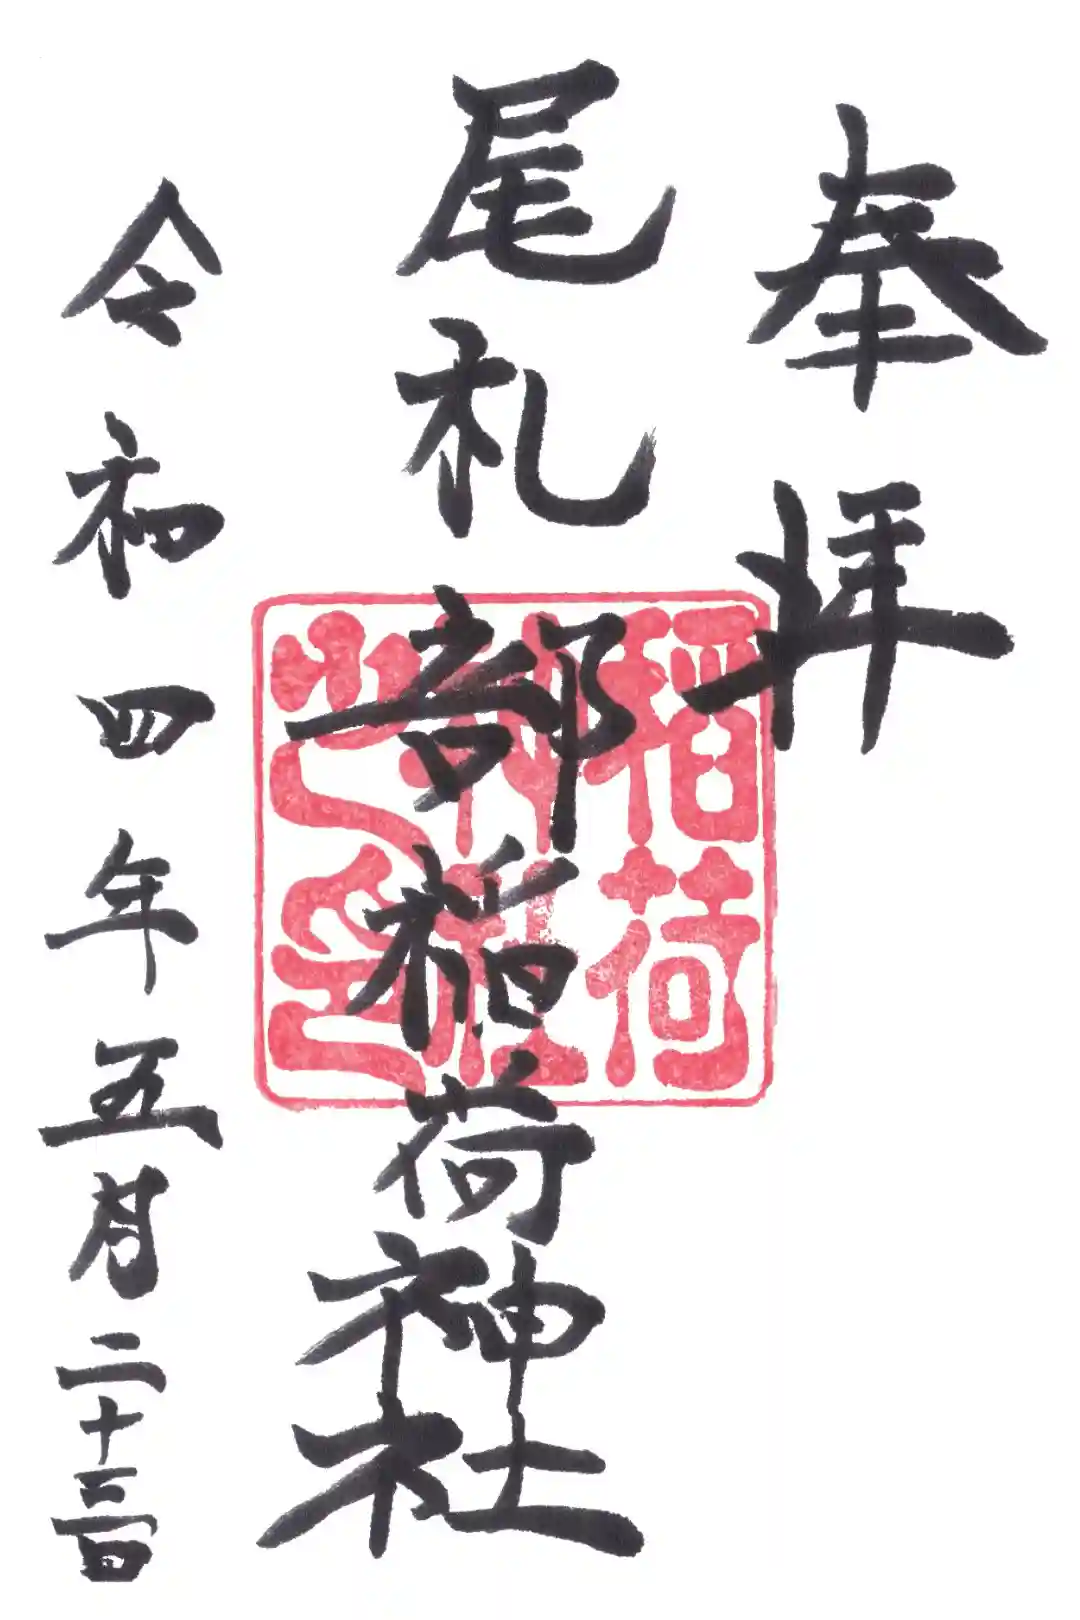 奉拝
尾札部稲荷神社
令和四年五月二十三日
稲荷
神社
之印